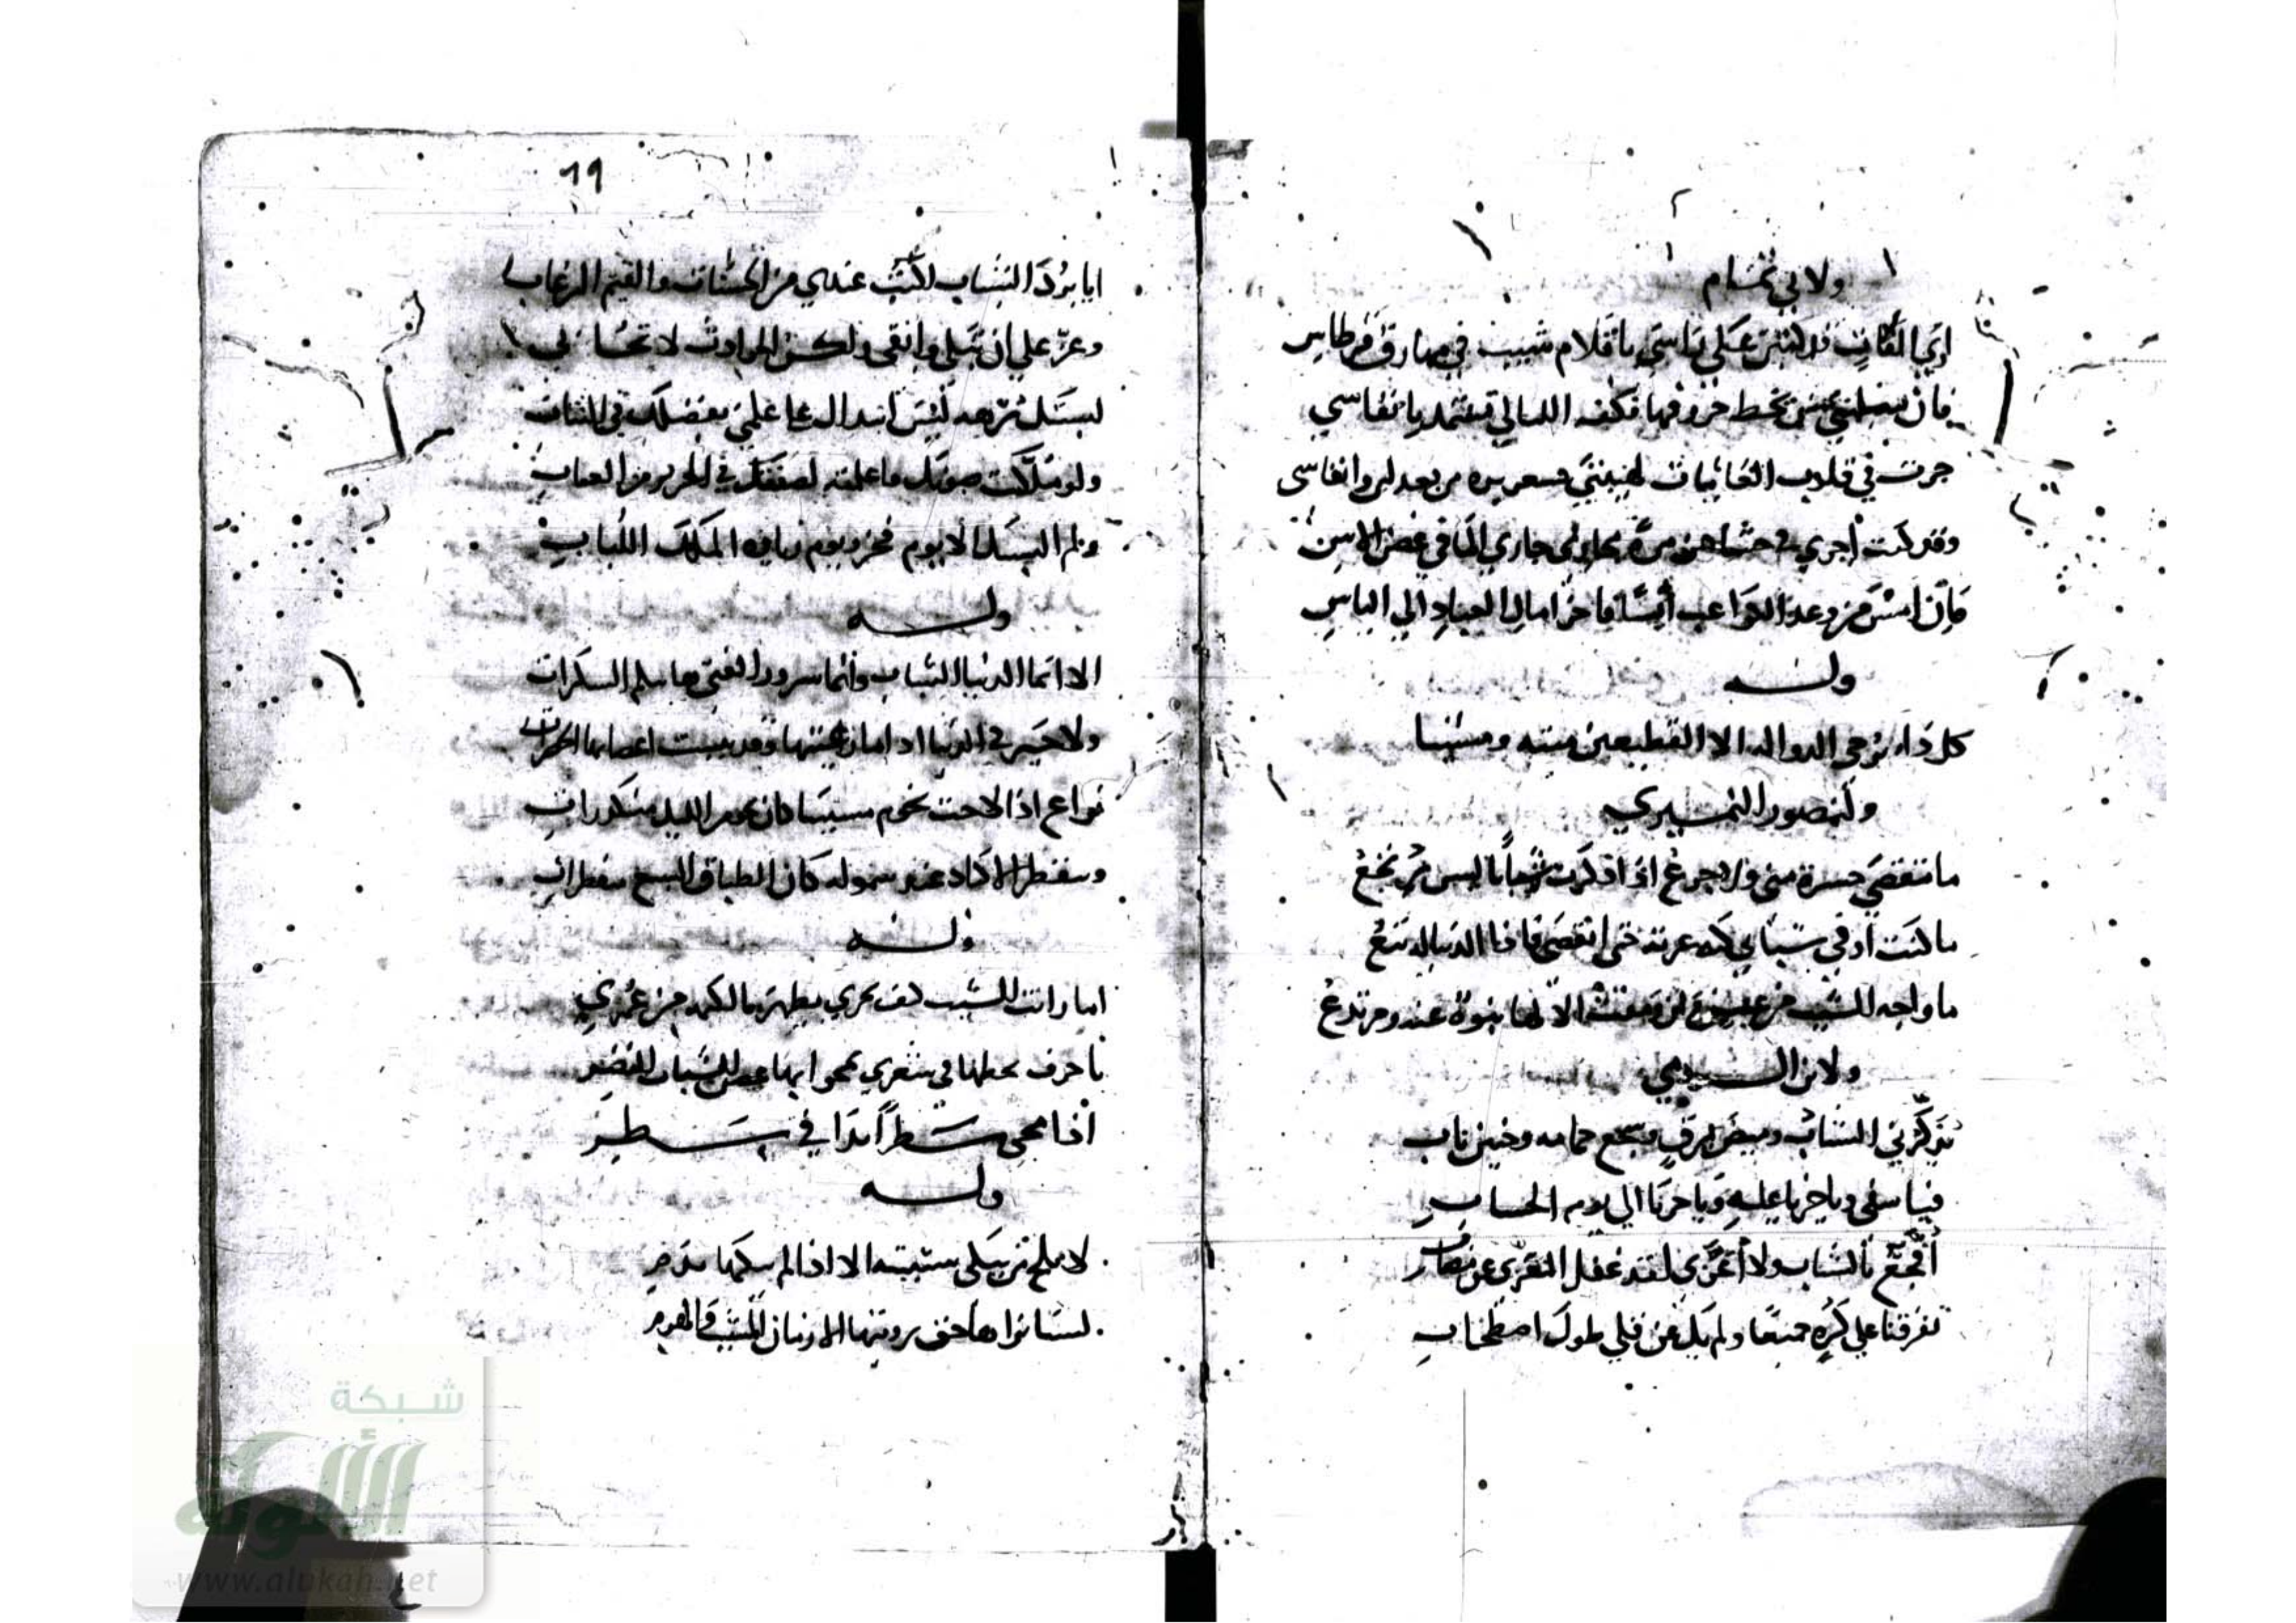 ولابي تمام
اري ... قد كتبن على راسي باقلام شيب في مهارق قرطاس
فان تسليني من يخط حروفها فكف الليالي تستمد بانفاسي
جرت في قلوب الغانيات لهيبتي قشعريرة من بعد لين وايناسي
وقد كنت أجري في حشاهن مرة مجاري جاري الما في غصن الاس
فان امس من وصل الكواعب آيسا فاخر امال العباد الي الياس
وله
كل داء يرجى الدوا له الا الفظيعين ميتة ومشيبا
ولمنصور النميري
ما تنقضي حسرة مني ولا جزع اذا ذكرت شبابا ليس يرتجع
ما كنت اوفي شبابي كنه عزته حتى انقضى فاذا الدنيا له تبع
ما واجه الشيب من عين وان ومقت الا لها نبوة عنه ومرتدع
ولابن الرومي
يذكرني الشباب وميض برق وسجع حمامة وحنين ناب
فيا اسفي ويا جزعا عليه ويا حزنا الي يوم الحساب
أأفجع بالشباب ولا أعزى لقد غفل المعزي عن مصاب
تفرقنا علي كره جميعا ولم يك عن قلي طول اصطحاب
19
ايا برد الشباب لكنت عندي من الحسنات والقسم الرغاب
وعز علي ان تبلى وابقى ولكن الحوادث لا تحابي
لبستك برهة لبس ابتذال علي علمي بفضلك في الثياب
ولو ملكت صونك فاعلمنه لصنتك في الحرير من العياب
ولم البسك الا يوم فخر ويوم زيارة الملك اللباب
وله
الا انما الدنيا الشباب وانما سرور الفتي هاتيكم السكرات
ولا خير في الدنيا اذا ما رعيتها وقد يبست اغصانها الخضرات
نواع اذا لاحت نجوم مشيبنا كان نجوم الليل منكدرات
وتنفطر الاكباد عند شموله كان الطباق السبع منفطرات
وله
اما رايت الشيب كيف يجري بطهرتها لكم من عمري
باحرف يخطها في شعري يمحوا بها غصن الشباب النضر
اذا محى سطرا بدا في سطر
وله
لا تلح من يبكي شبيبته الا اذا لم يبكها بدم
لسنا نراها حق رؤيتها الا زمان الشيب والهرم
شبكة
الألوكة
www.alukah.net